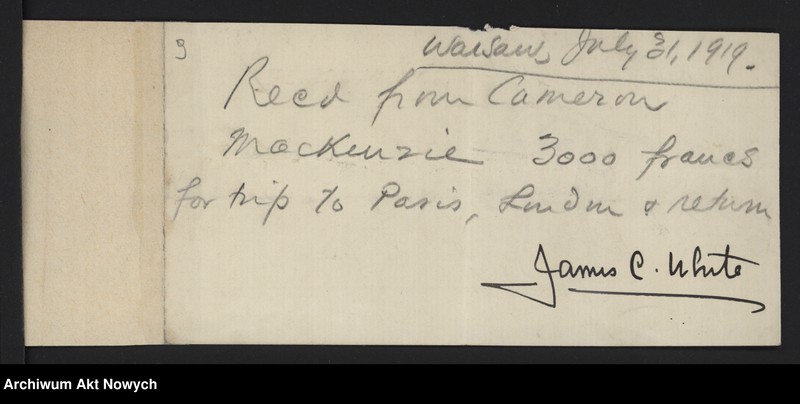 3
Warsaw, July 31, 1919.
Recd from Cameron
MacKenzie 3000 francs
for trip to Paris, London & return
James C. White
Archiwum Akt Nowych